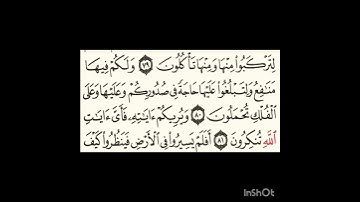 لِتَرْكَبُوا۟ مِنْهَا وَمِنْهَا تَأْكُلُونَ ٧٩ وَلَكُمْ فِيهَا
مَنَٰفِعُ وَلِتَبْلُغُوا۟ عَلَيْهَا حَاجَةً فِى صُدُورِكُمْ وَعَلَيْهَا وَعَلَى
ٱلْفُلْكِ تُحْمَلُونَ ٨٠ وَيُرِيكُمْ ءَايَٰتِهِۦ فَأَىَّ ءَايَٰتِ
ٱللَّهِ تُنكِرُونَ ٨١ أَفَلَمْ يَسِيرُوا۟ فِى ٱلْأَرْضِ فَيَنظُرُوا۟ كَيْفَ
InShOt